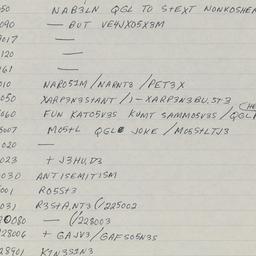 050 NAB3LN QGL TO STEXT NONKOSHER
090 — BUT VE4JX05X3M
9017 —
120 —
161 —
010 NAR051M/NARNT3/PET3X
050 XARP3N3STANT/1-XARP3N3BU.ST3
060 FUN KAT05V3S KUMT SAMM05V3S/QGL
5007 M05TL QGL JOKE/M05STLTJ3
020 —
023 + J3HU.D3
030 ANTISEMITISM
001 R05ST3
031 R3STA.NT3(/225002
20080 — (/228003
228006 + GAJV3/GAFS05N3S
228901 K1N3S1N3